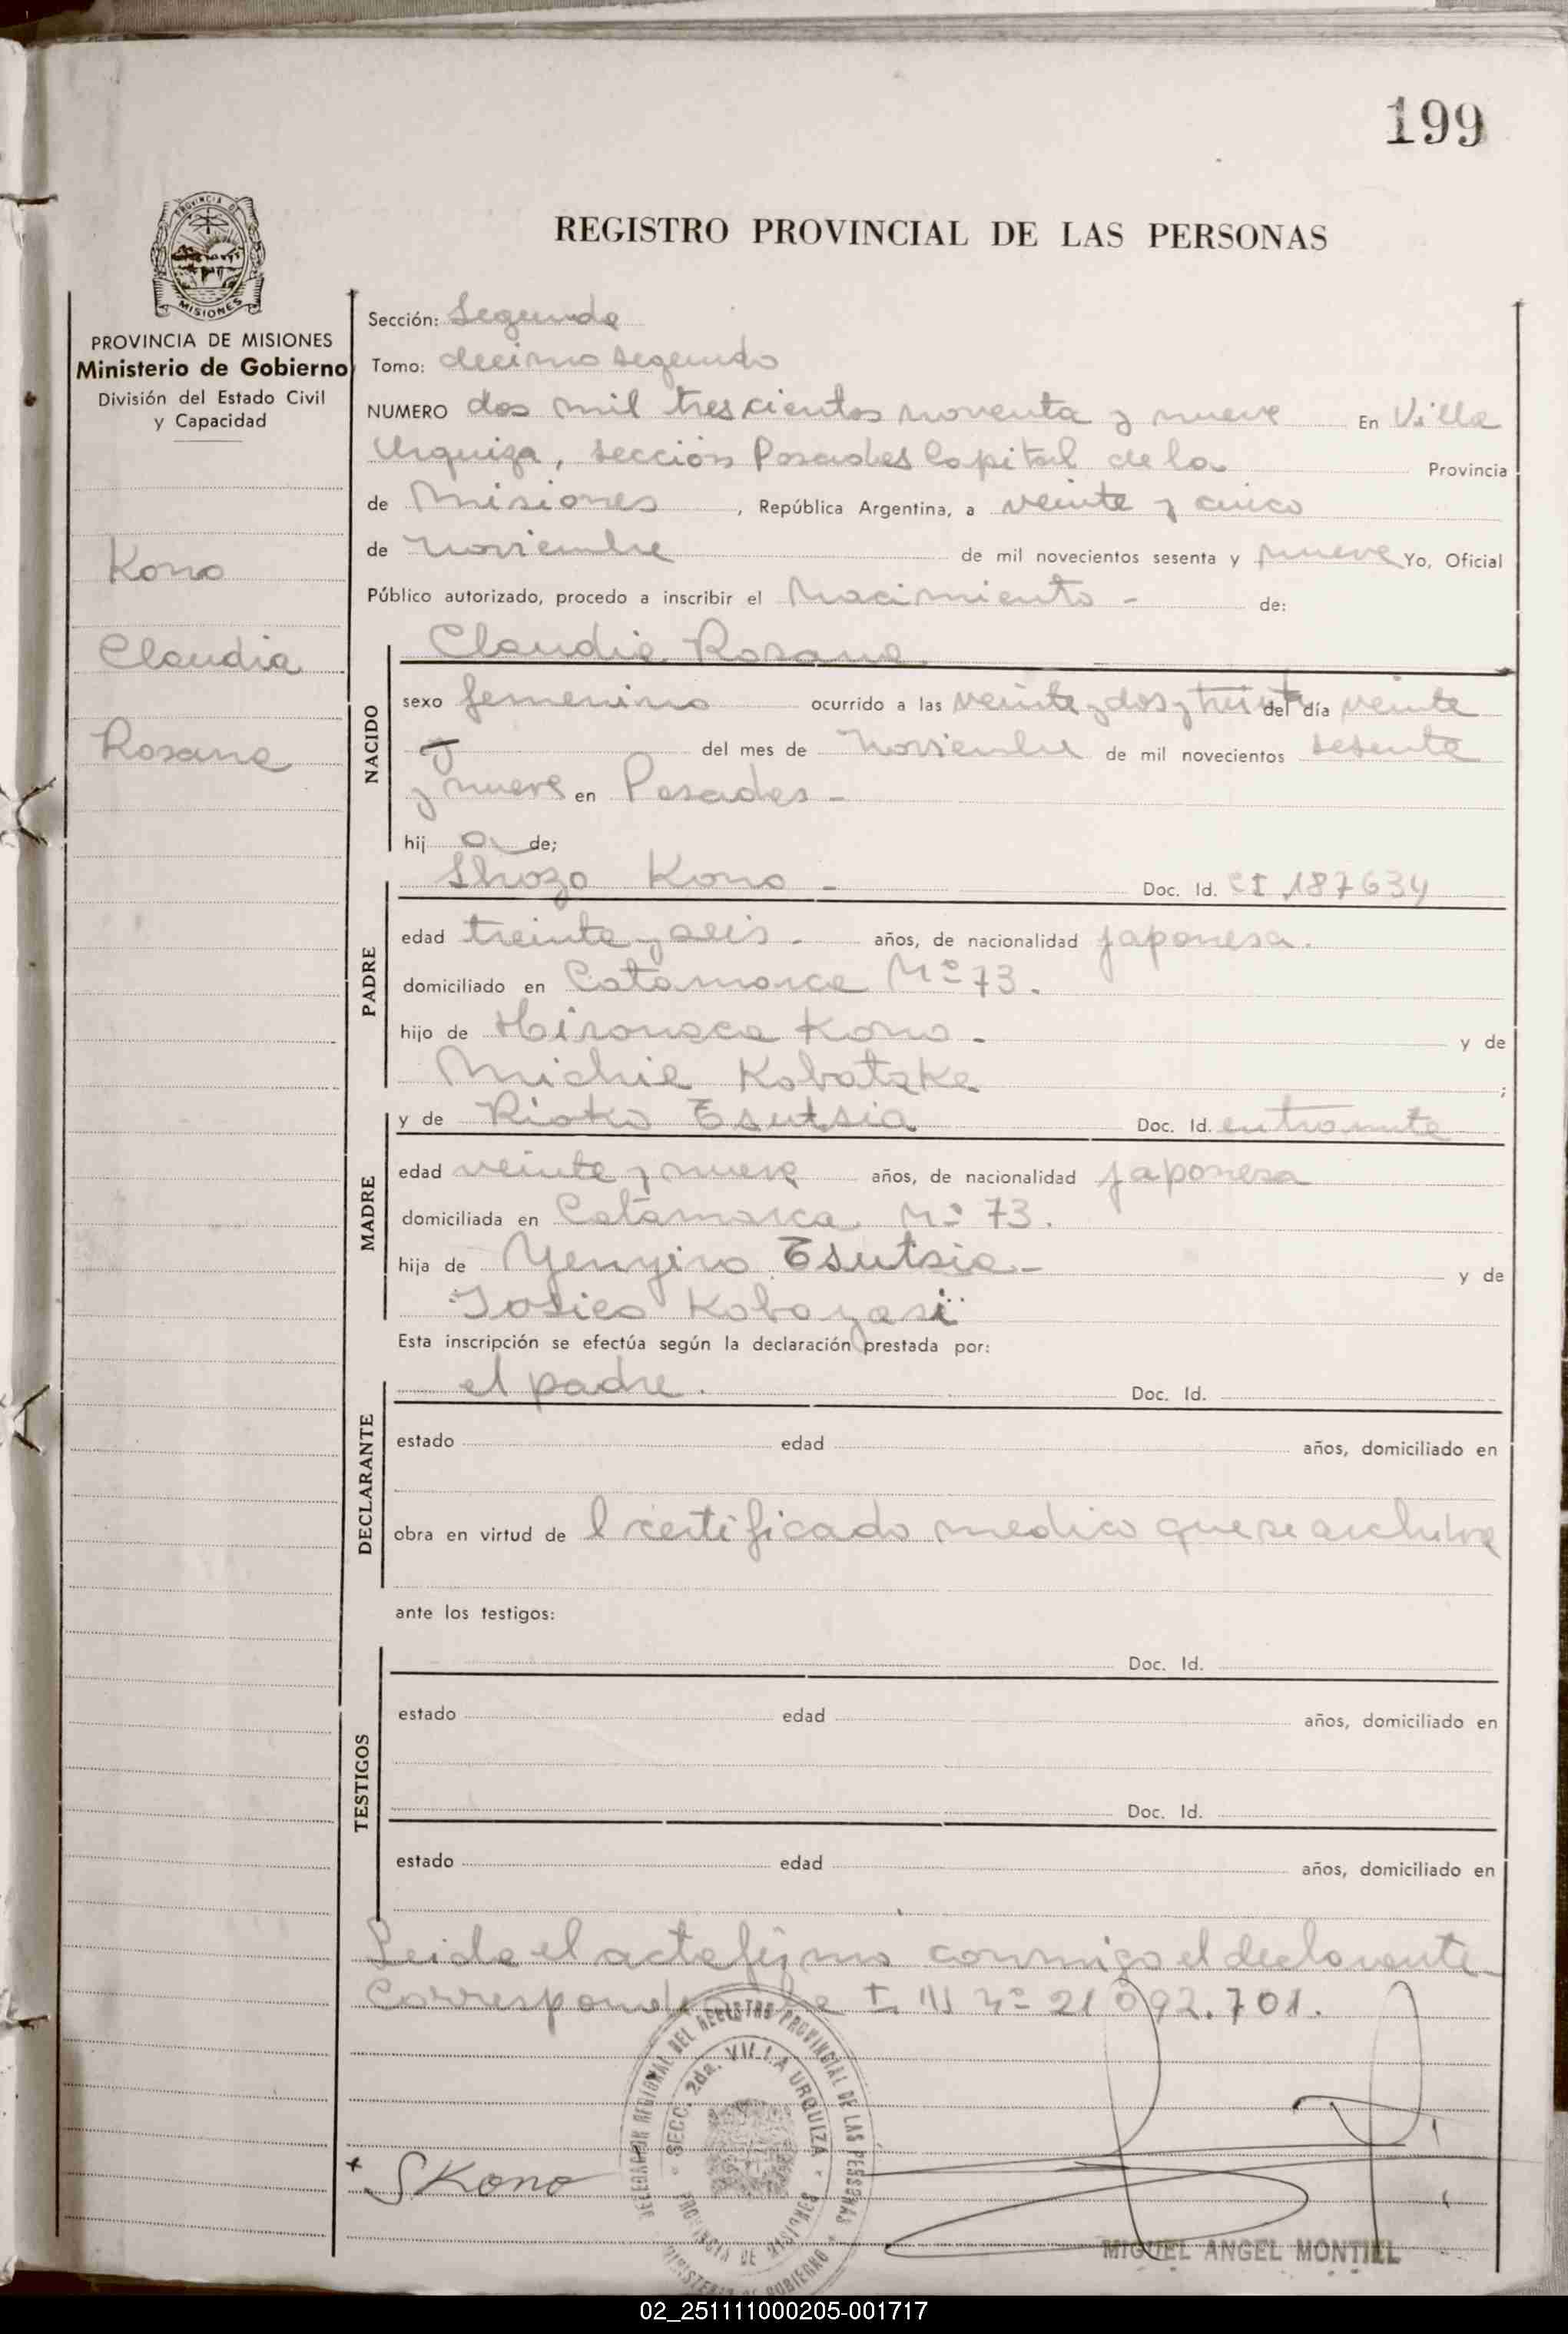 199
PROVINCIA DE
MISIONES
REGISTRO PROVINCIAL DE LAS PERSONAS
PROVINCIA DE MISIONES
Ministerio de Gobierno
División del Estado Civil
y Capacidad
Kono
Claudia
Rosana
Sección: Segunda
Tomo: decimo segundo
NUMERO dos mil trescientos noventa y nueve En Villa
Urquiza, sección Posadas Capital de la Provincia
de Misiones, República Argentina, a veinte y cinco
de noviembre de mil novecientos sesenta y nueve Yo, Oficial
Público autorizado, procedo a inscribir el Nacimiento - de:
Claudia Rosana
NACIDO
sexo femenino ocurrido a las veinte y dos y treinta del día veinte
del mes de Noviembre de mil novecientos sesenta
y nueve en Posadas -
hij a de;
PADRE
Shozo Kono - Doc. Id. CI 187634
edad treinta y seis - años, de nacionalidad japonesa.
domiciliado en Catamarca Nº 73.
hijo de Hironaca Kono - y de
Michie Kobatake ;
MADRE
y de Rioko Tsutsia Doc. Id. en tramite
edad veinte y nueve años, de nacionalidad japonesa
domiciliada en Catamarca Nº 73.
hija de Yenyiro Tsutsia - y de
Kobayasi
Esta inscripción se efectúa según la declaración prestada por:
DECLARANTE
el padre. Doc. Id.
estado edad años, domiciliado en
obra en virtud de l certificado medico que se archiva
ante los testigos:
TESTIGOS
Doc. Id.
estado edad años, domiciliado en
Doc. Id.
estado edad años, domiciliado en
Leida el acta firma conmigo el declarante -
Corresponde Nº 21092.701.
DELEGACION REGIONAL DEL REGISTRO PROVINCIAL DE LAS PERSONAS
SECC. 2da. VILLA URQUIZA
PROVINCIA DE MISIONES
MINISTERIO DE GOBIERNO
+ SKono
MIGUEL ANGEL MONTIEL
02_251111000205-001717